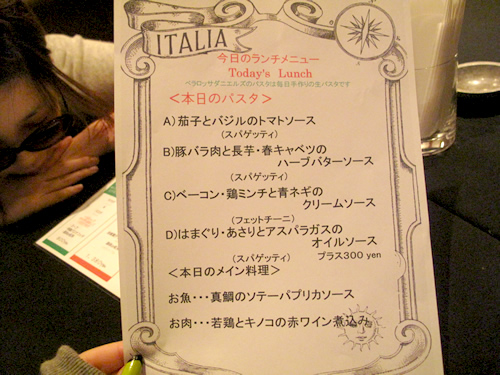 ITALIA
今日のランチメニュー
Today's Lunch
ベラロッサダニエルズのパスタは毎日手作りの生パスタです
＜本日のパスタ＞
A）茄子とバジルのトマトソース
（スパゲッティ）
B）豚バラ肉と長芋・春キャベツの
ハーブバターソース
（スパゲッティ）
C）ベーコン・鶏ミンチと青ネギの
クリームソース
（フェットチーニ）
D）はまぐり・あさりとアスパラガスの
オイルソース
（スパゲッティ） プラス300 yen
＜本日のメイン料理＞
お魚・・・真鯛のソテーパプリカソース
お肉・・・若鶏とキノコの赤ワイン煮込み